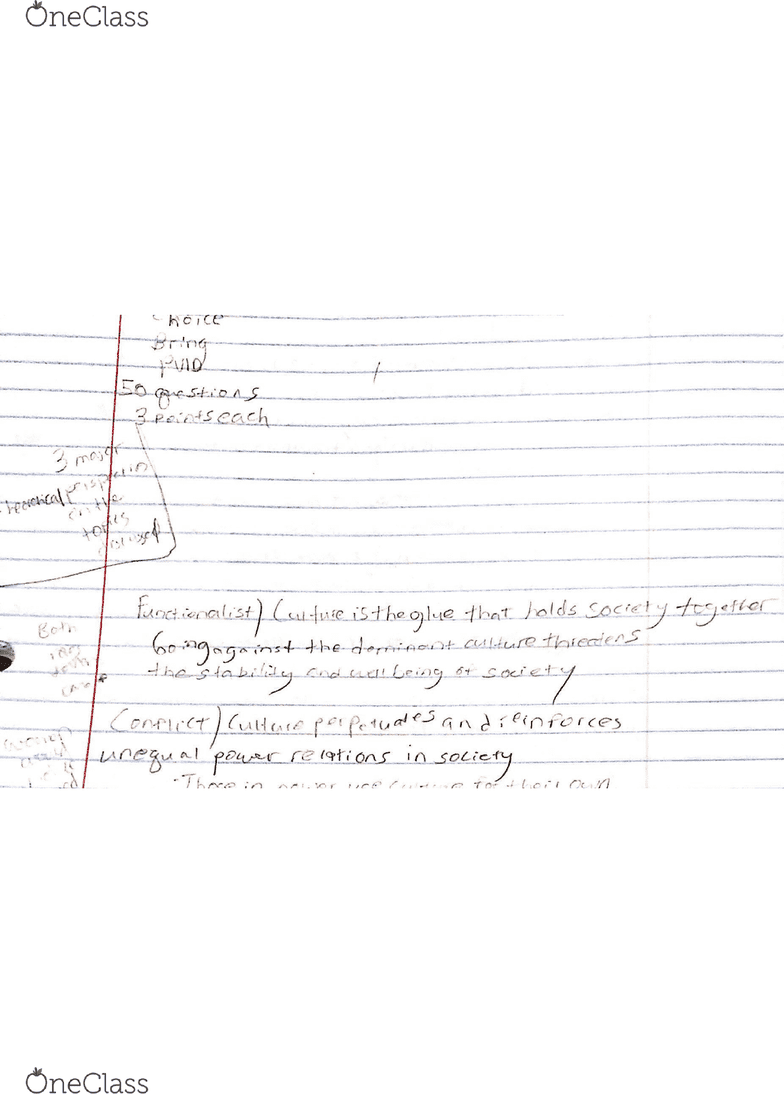 OneClass
choice
Bring
50 questions
3 points each
3 major
theoretical
topics
Functionalist) Culture is the glue that holds society together
Going against the dominant culture threatens
the stability and well being of society
Both
Conflict) Culture perpetuates and reinforces
unequal power relations in society
Those in power use for their own
OneClass